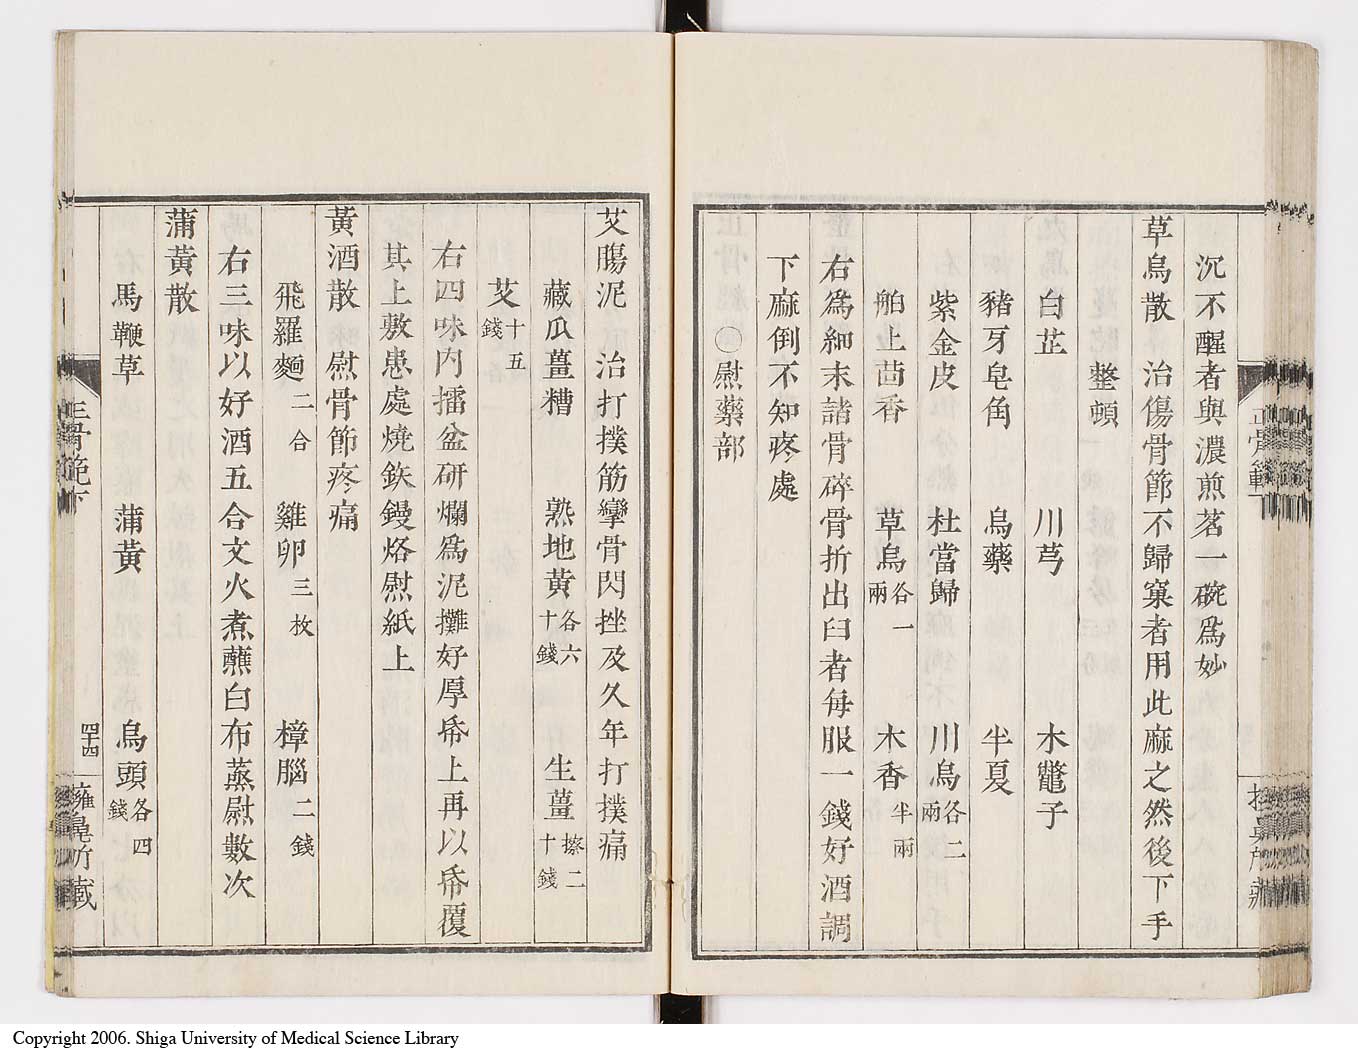 沉不醒者與濃煎茗一碗爲妙
草烏散　治傷骨節不歸窠者用此麻之然後下手
整頓
白芷　川芎　木鼈子
豬牙皂角　烏藥　半夏
紫金皮　杜當歸　川烏各二兩
舶上茴香　草烏各一兩　木香半兩
右爲細末諸骨碎骨折出臼者每服一錢好酒調
下麻倒不知疼處
〇慰藥部
艾腸泥　治打撲筋攣骨閃挫及久年打撲痛
藏瓜薑糟　熟地黃各六十錢　生薑擦二十錢
艾十五錢
右四味內擂盆研爛爲泥攤好厚帋上再以帋覆
其上敷患處燒鉄鏝烙慰紙上
黃酒散　慰骨節疼痛
飛羅麵二合　雞卵三枚　樟腦二錢
右三味以好酒五合文火煮蘸白布蒸慰數次
蒲黃散
馬鞭草　蒲黃　烏頭各四錢
正骨範下
四十四
Copyright 2006. Shiga University of Medical Science Library